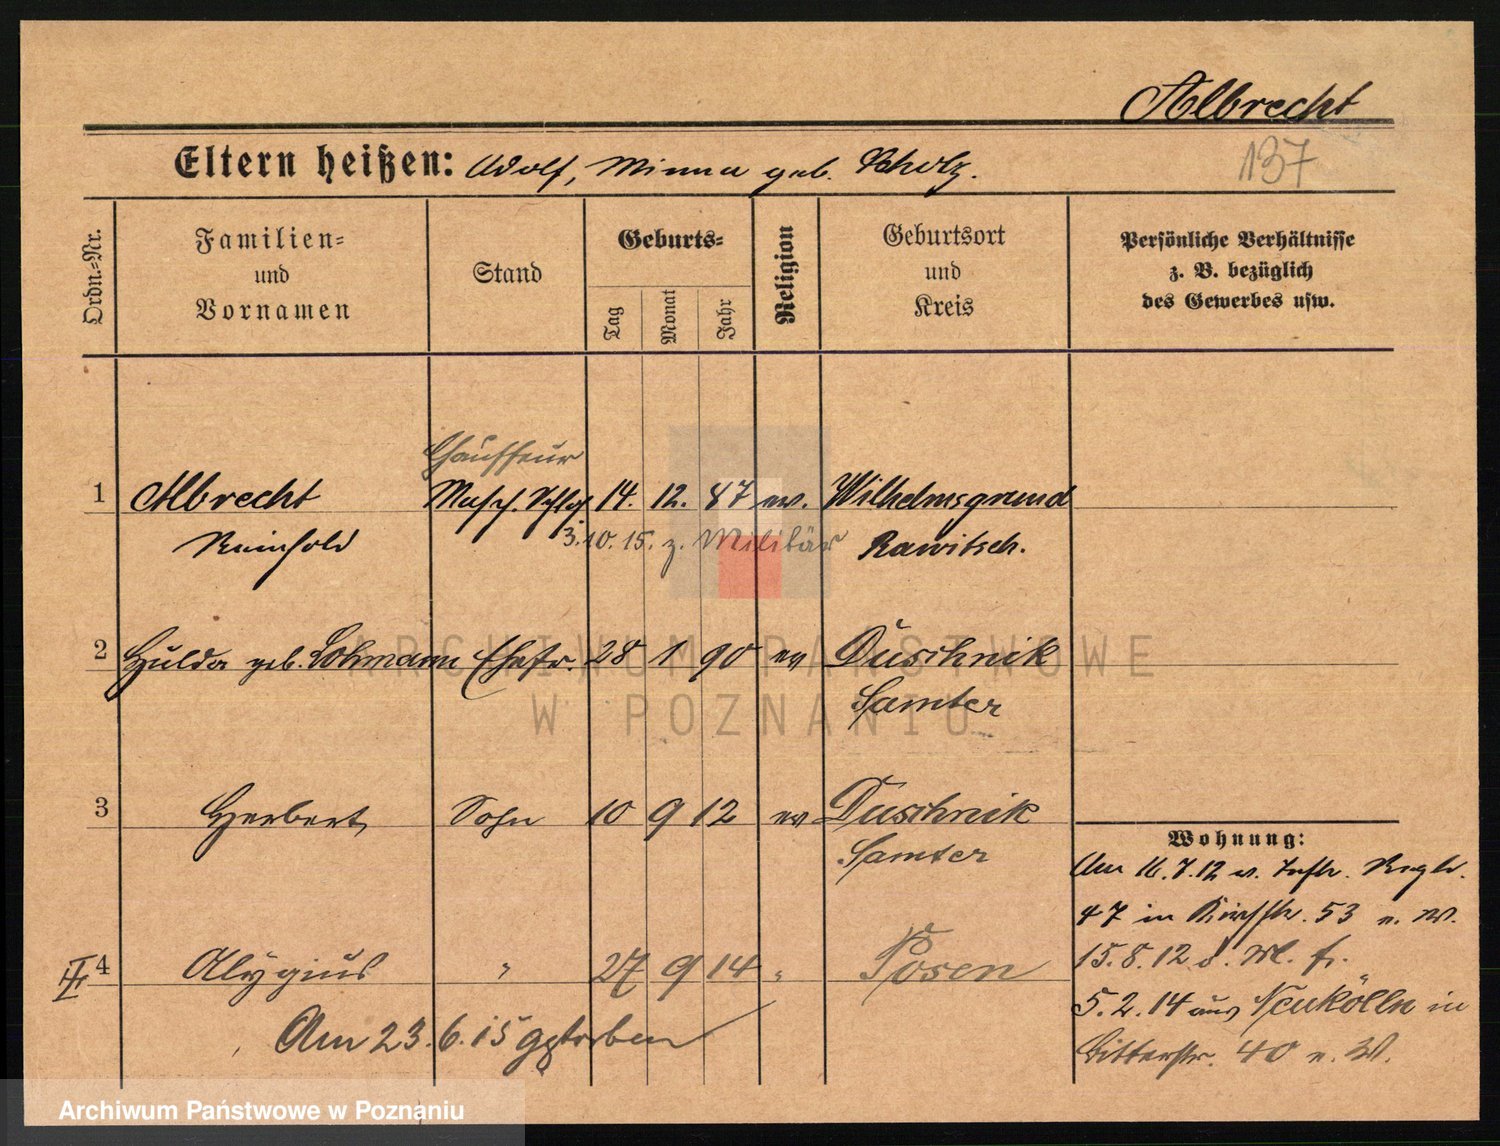 Albrecht
137
Eltern heißen: Adolf, Minna geb. Scholz.
Ordn.-Nr.
Familien- und Vornamen
Stand
Geburts-
Tag
Monat
Jahr
Religion
Geburtsort und Kreis
Persönliche Verhältnisse
z. B. bezüglich
des Gewerbes usw.
Chauffeur
1 Albrecht Masch. Schlos. 14. 12. 87 ev. Wilhelmsgrund
Reinhold 3.10.15. z. Militär Rawitsch.
2 Hulda geb. Lohmann Ehefr. 28 1 90 ev Duschnik
Samter
3 Herbert Sohn 10 9 12 ev Duschnik
Samter
4 Aloysius " 27 9 14 " Posen
Am 23.6.15 gestorben
Wohnung:
Am 16.7.12 v. Inftr. Regt.
47 in 53 n. W.
15.8.12
5.2.14 aus Neukölln in
Ritterstr. 40 n. W.
ARCHIWUM PAŃSTWOWE
W POZNANIU
Archiwum Państwowe w Poznaniu